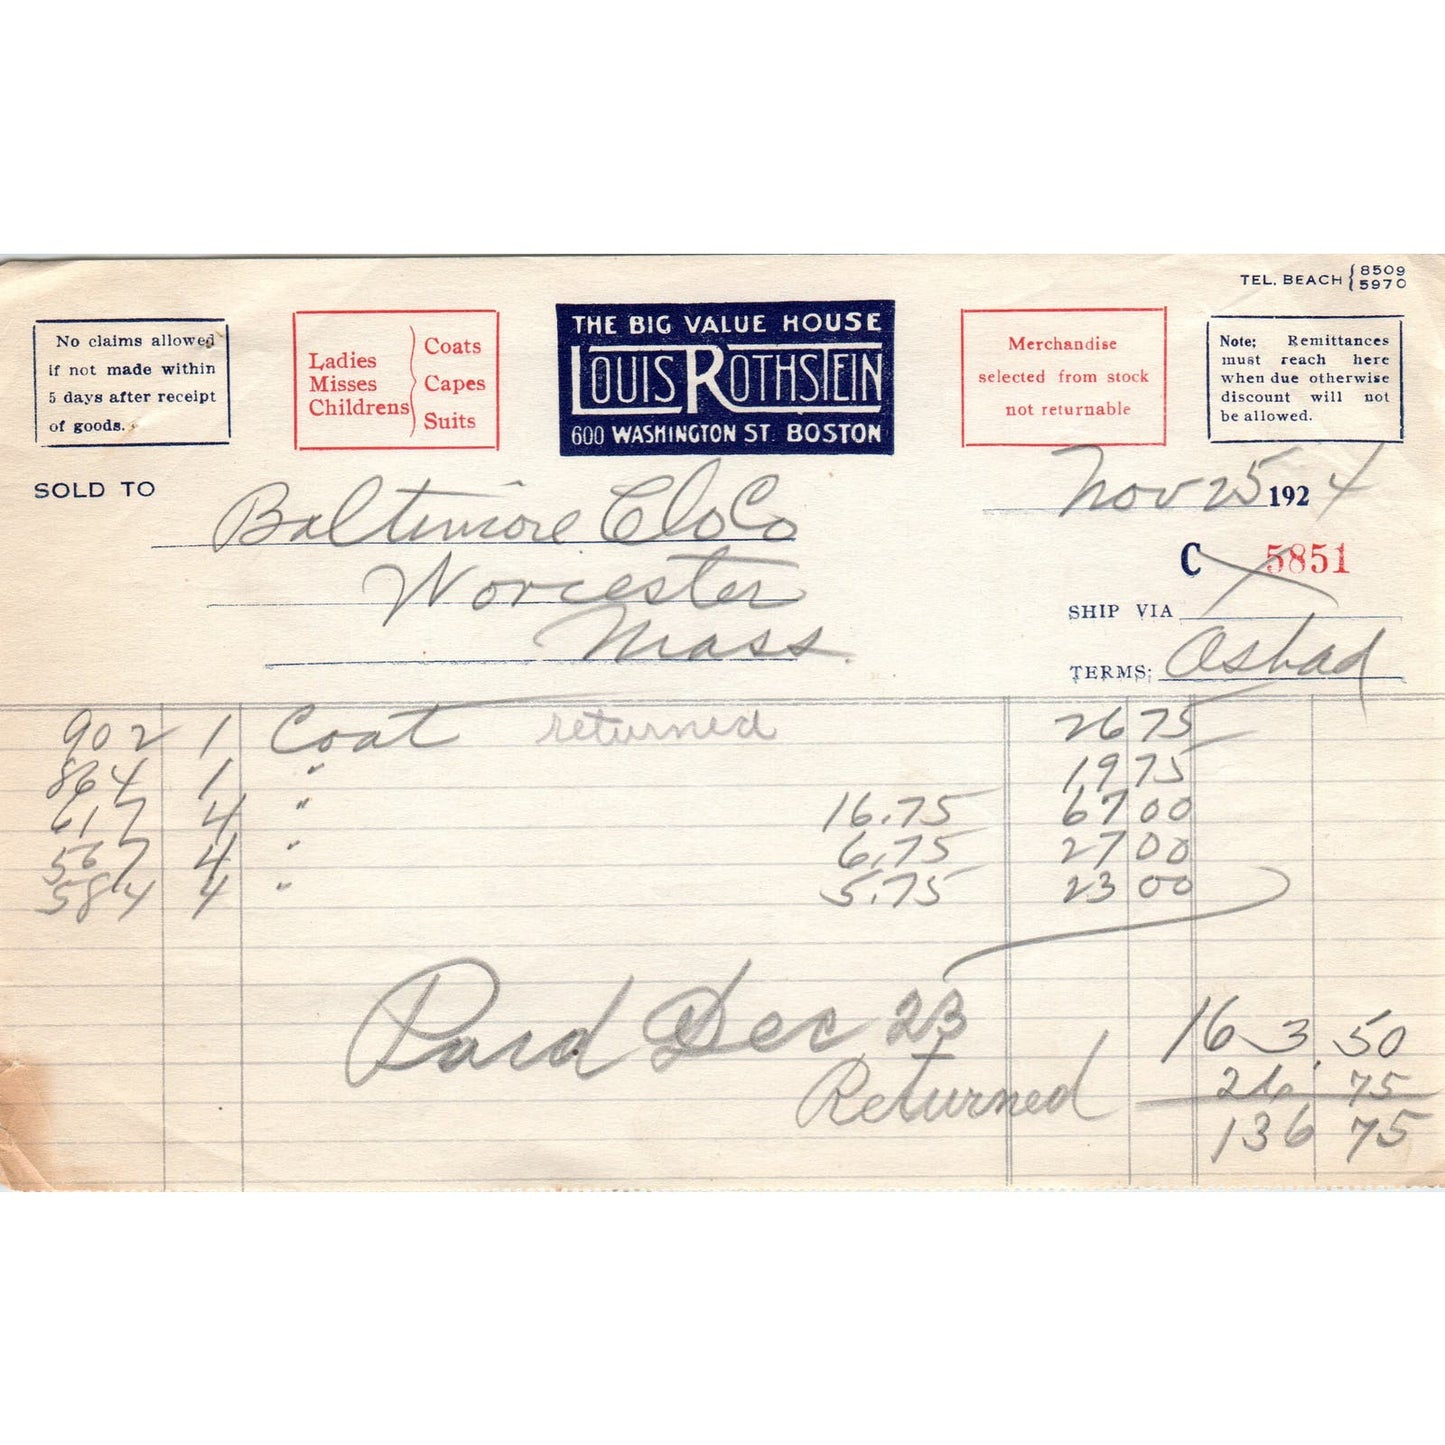 TEL. BEACH { 8509
5970
No claims allowed
if not made within
5 days after receipt
of goods.
Ladies
Misses
Childrens
Coats
Capes
Suits
THE BIG VALUE HOUSE
LOUIS ROTHSTEIN
600 WASHINGTON ST. BOSTON
Merchandise
selected from stock
not returnable
Note; Remittances
must reach here
when due otherwise
discount will not
be allowed.
SOLD TO Baltimore Clo Co
Worcester
Mass.
Nov 25 1924
C 5851
SHIP VIA
TERMS:
902 1 Coat returned 26 75
864 1 " 19 75
617 4 " 16.75 67 00
567 4 " 6.75 27 00
584 4 " 5.75 23 00
Paid Dec 23
163.50
Returned 26 75
136 75